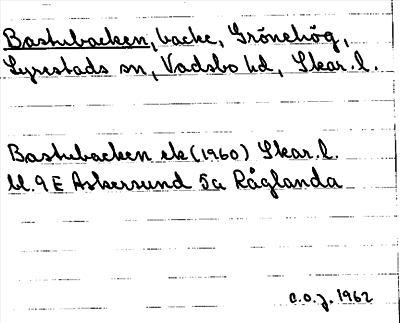 Bastubacken, backe, Grönehög,
Lyrestads sn, Vadsbo hd, Skar. l.
Bastubacken ek (1960) Skar. l.
bl. 9E Askersund 5a Råglanda
C.O.J. 1962